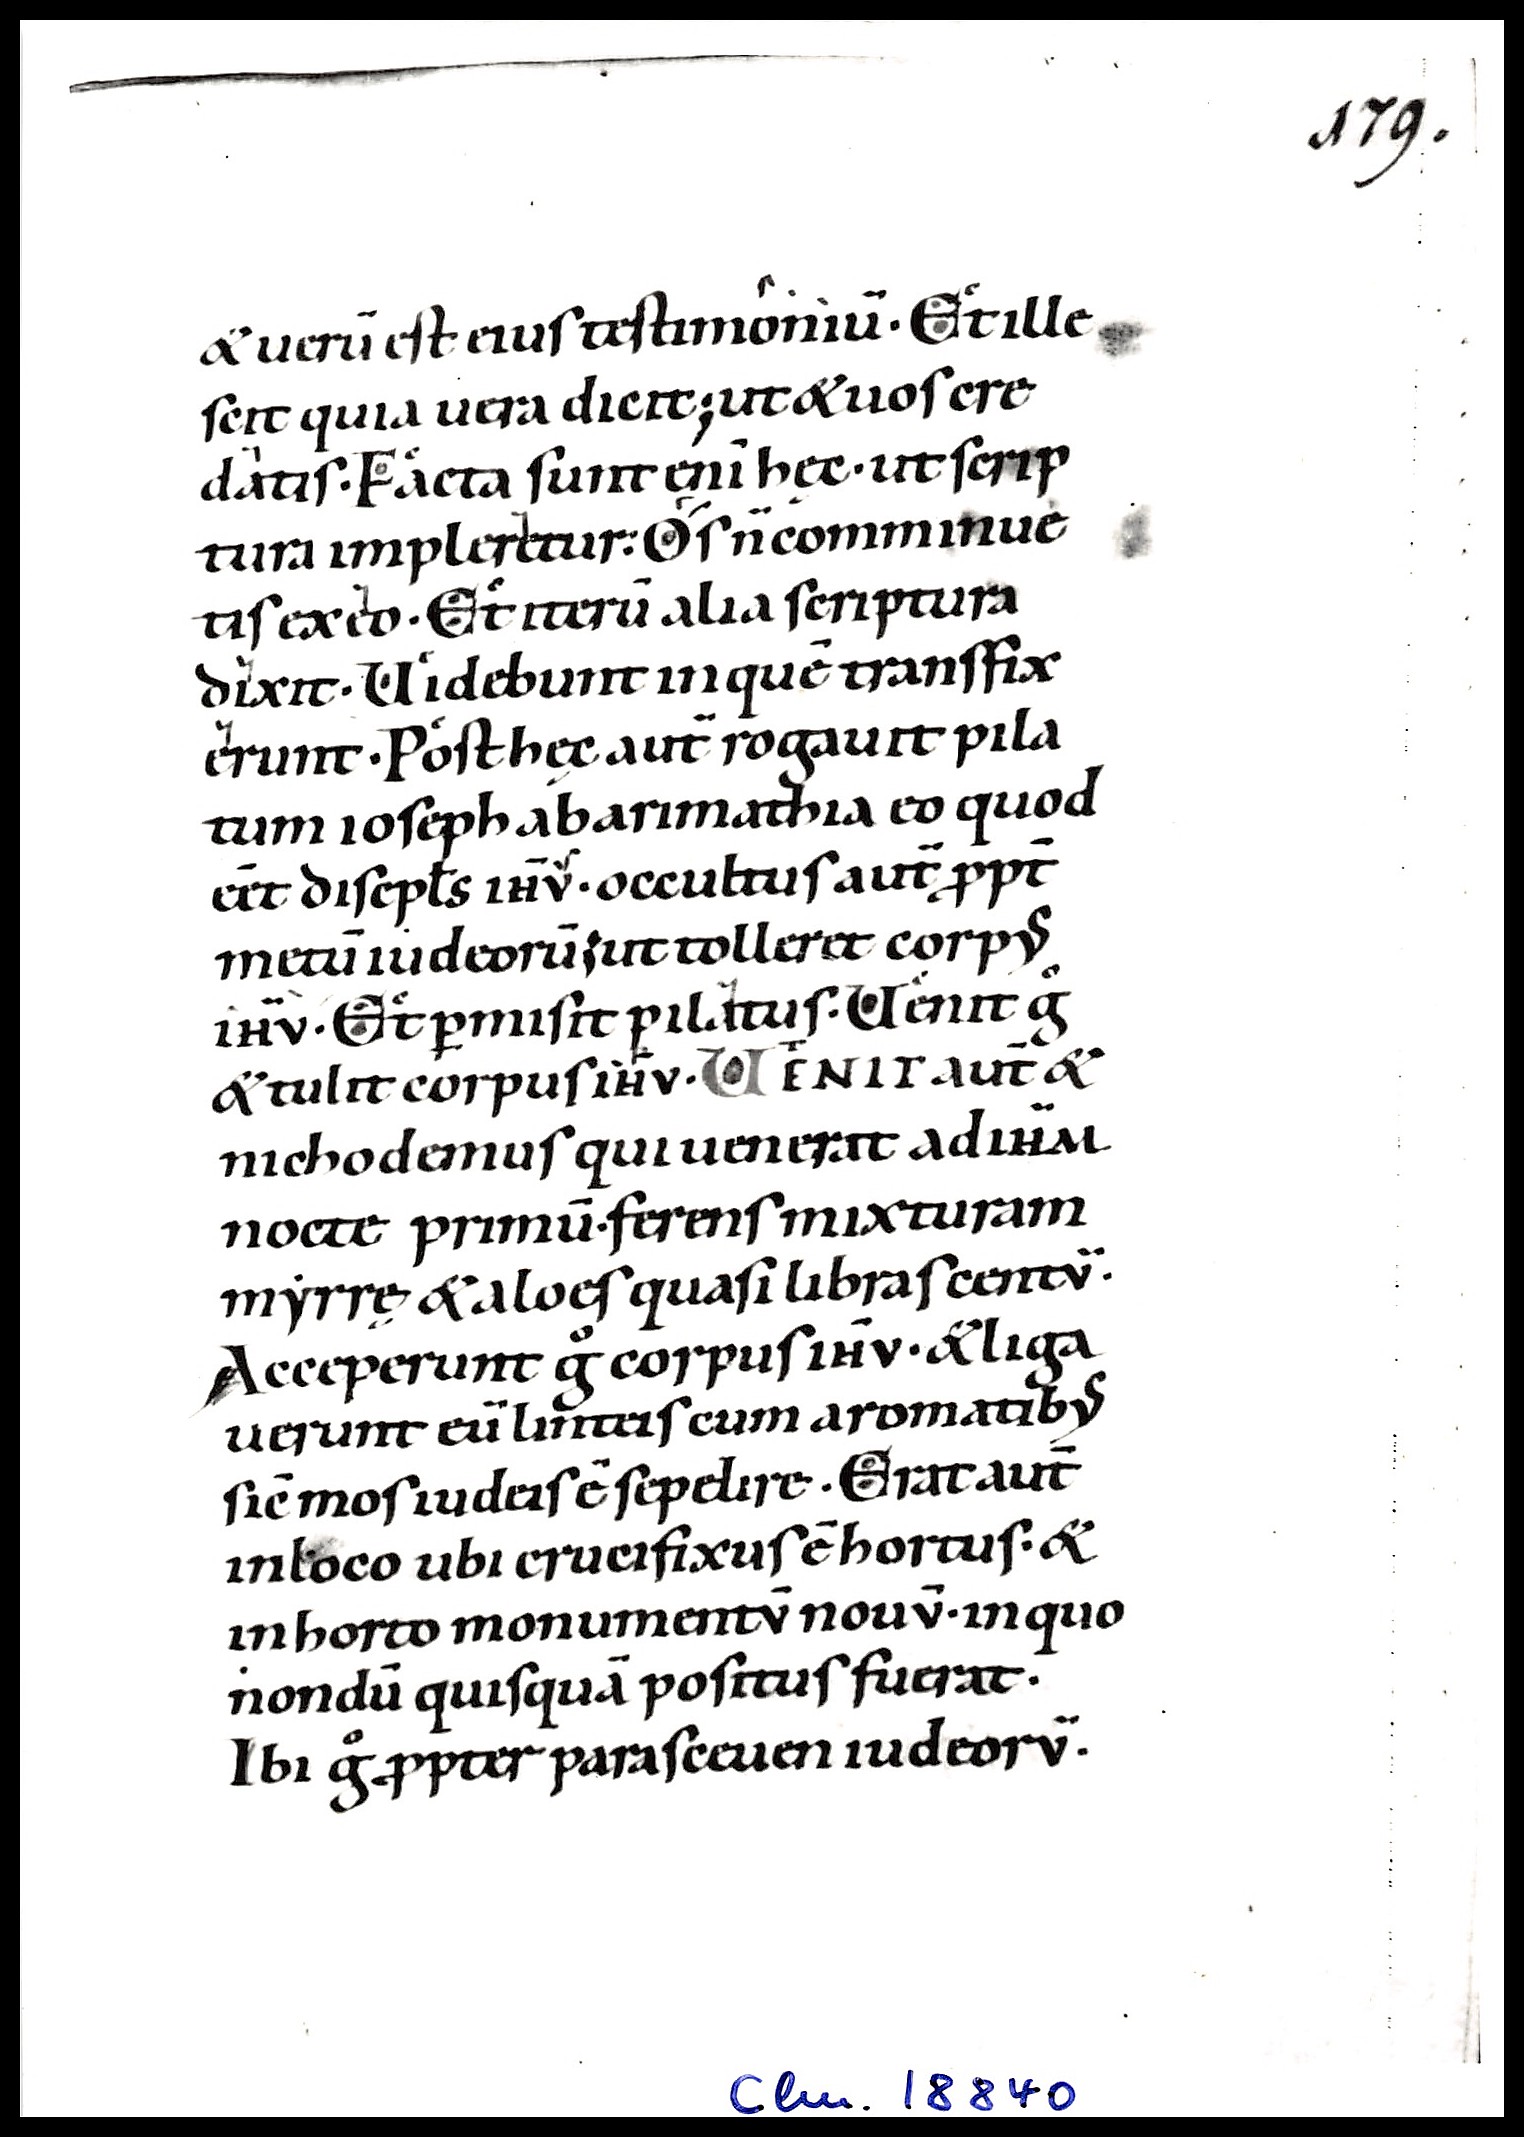 179.
& uerū est eius testimoniū. Et ille
scit quia uera dicit; ut & uos cre
datis. Facta sunt enī hęc. ut scrip
tura impleretur: Os n̄ comminue
tis ex eo. Et iterū alia scriptura
dixit. Uidebunt in quē transfix
erunt. Post hęc aut̄ rogauit pila
tum ioseph ab arimathia eo quod
eēt discipl̄s ihv̄. occultus aut̄ ꝓpt̄
metū iudeorū; ut tolleret corpꝰ
ihv̄. Et ꝑmisit pilatus. Uenit gͦ
& tulit corpus ihv̄. UENIT aut̄ &
nichodemus qui uenerat ad ihm̄
nocte primū. ferens mixturam
myrrę & aloes quasi libras centv̄.
Acceperunt gͦ corpus ihv̄. & liga
uerunt eū linteis cum aromatibꝰ
sic̄ mos iudeis ē sepelire. Erat aut̄
in loco ubi crucifixus ē hortus. &
in horto monumentv̄ nouv̄. in quo
nondū quisquā positus fuerat.
Ibi gͦ ꝓpter parasceuen iudeorv̄.
Clm. 18840